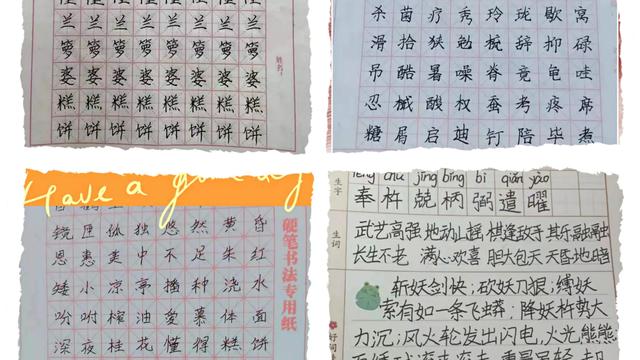 兰兰兰兰兰兰兰兰
箩箩箩箩箩箩箩箩
婆婆婆婆婆婆婆婆
糕糕糕糕糕糕糕糕
饼饼饼饼饼饼饼饼
姓名:
杀菌疗秀玲珑歇窝
滑拾狭勉梳辞抑碌
吊酷暑噪脊竟龟哇
忍械酸权蚕考疼席
糖屑启迪钉陪毕煮
Have a
镜匣孤独悠然黄昏
恩惠美中不足朱红
矮小凉亭播种浇水
吩咐榨油爱慕体面
深夜桂花懂得糕饼
硬笔书法专用纸
生字
chǔ jīng bǐng bì qiǎn yào
奉杵兢柄弼遣曜
生词
武艺高强 地动山摇 棋逢敌手 其乐融融
长生不老 满心欢喜 胆大包天 天昏地暗
好词
斩妖剑快;砍妖刀狠;缚妖
索有如一条飞蟒;降妖杵势大
力沉;风火轮发出闪电,火光熊熊